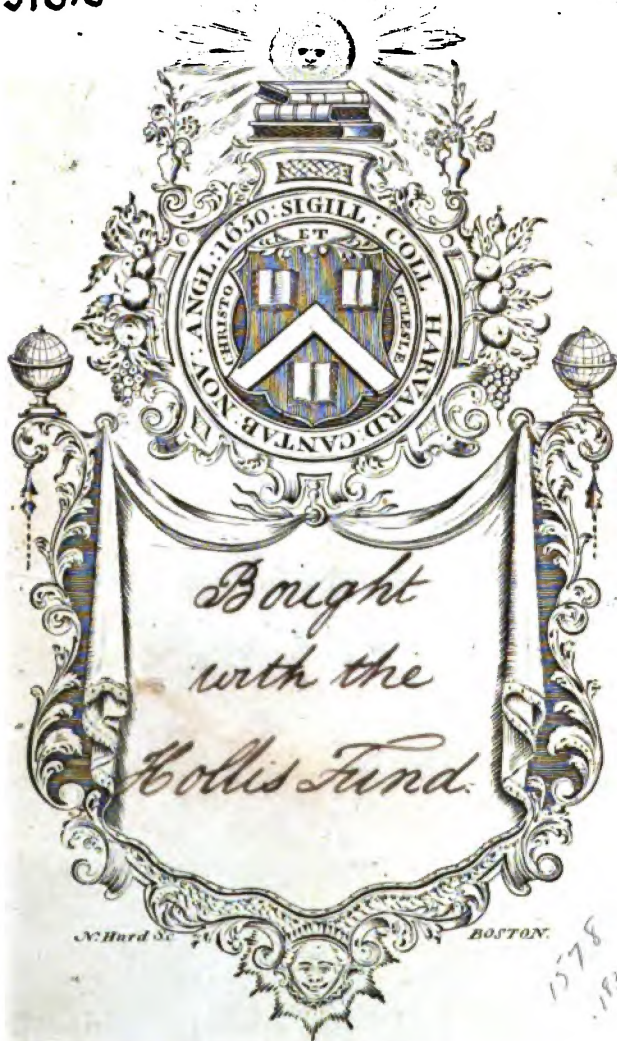 SIGILL : COLL HARVARD : CANTAB : NOV : ANGL : 1650 :
CHRISTO ET ECCLESIÆ
Bought
with the
Hollis Fund.
N. Hurd Sc
BOSTON.
1578